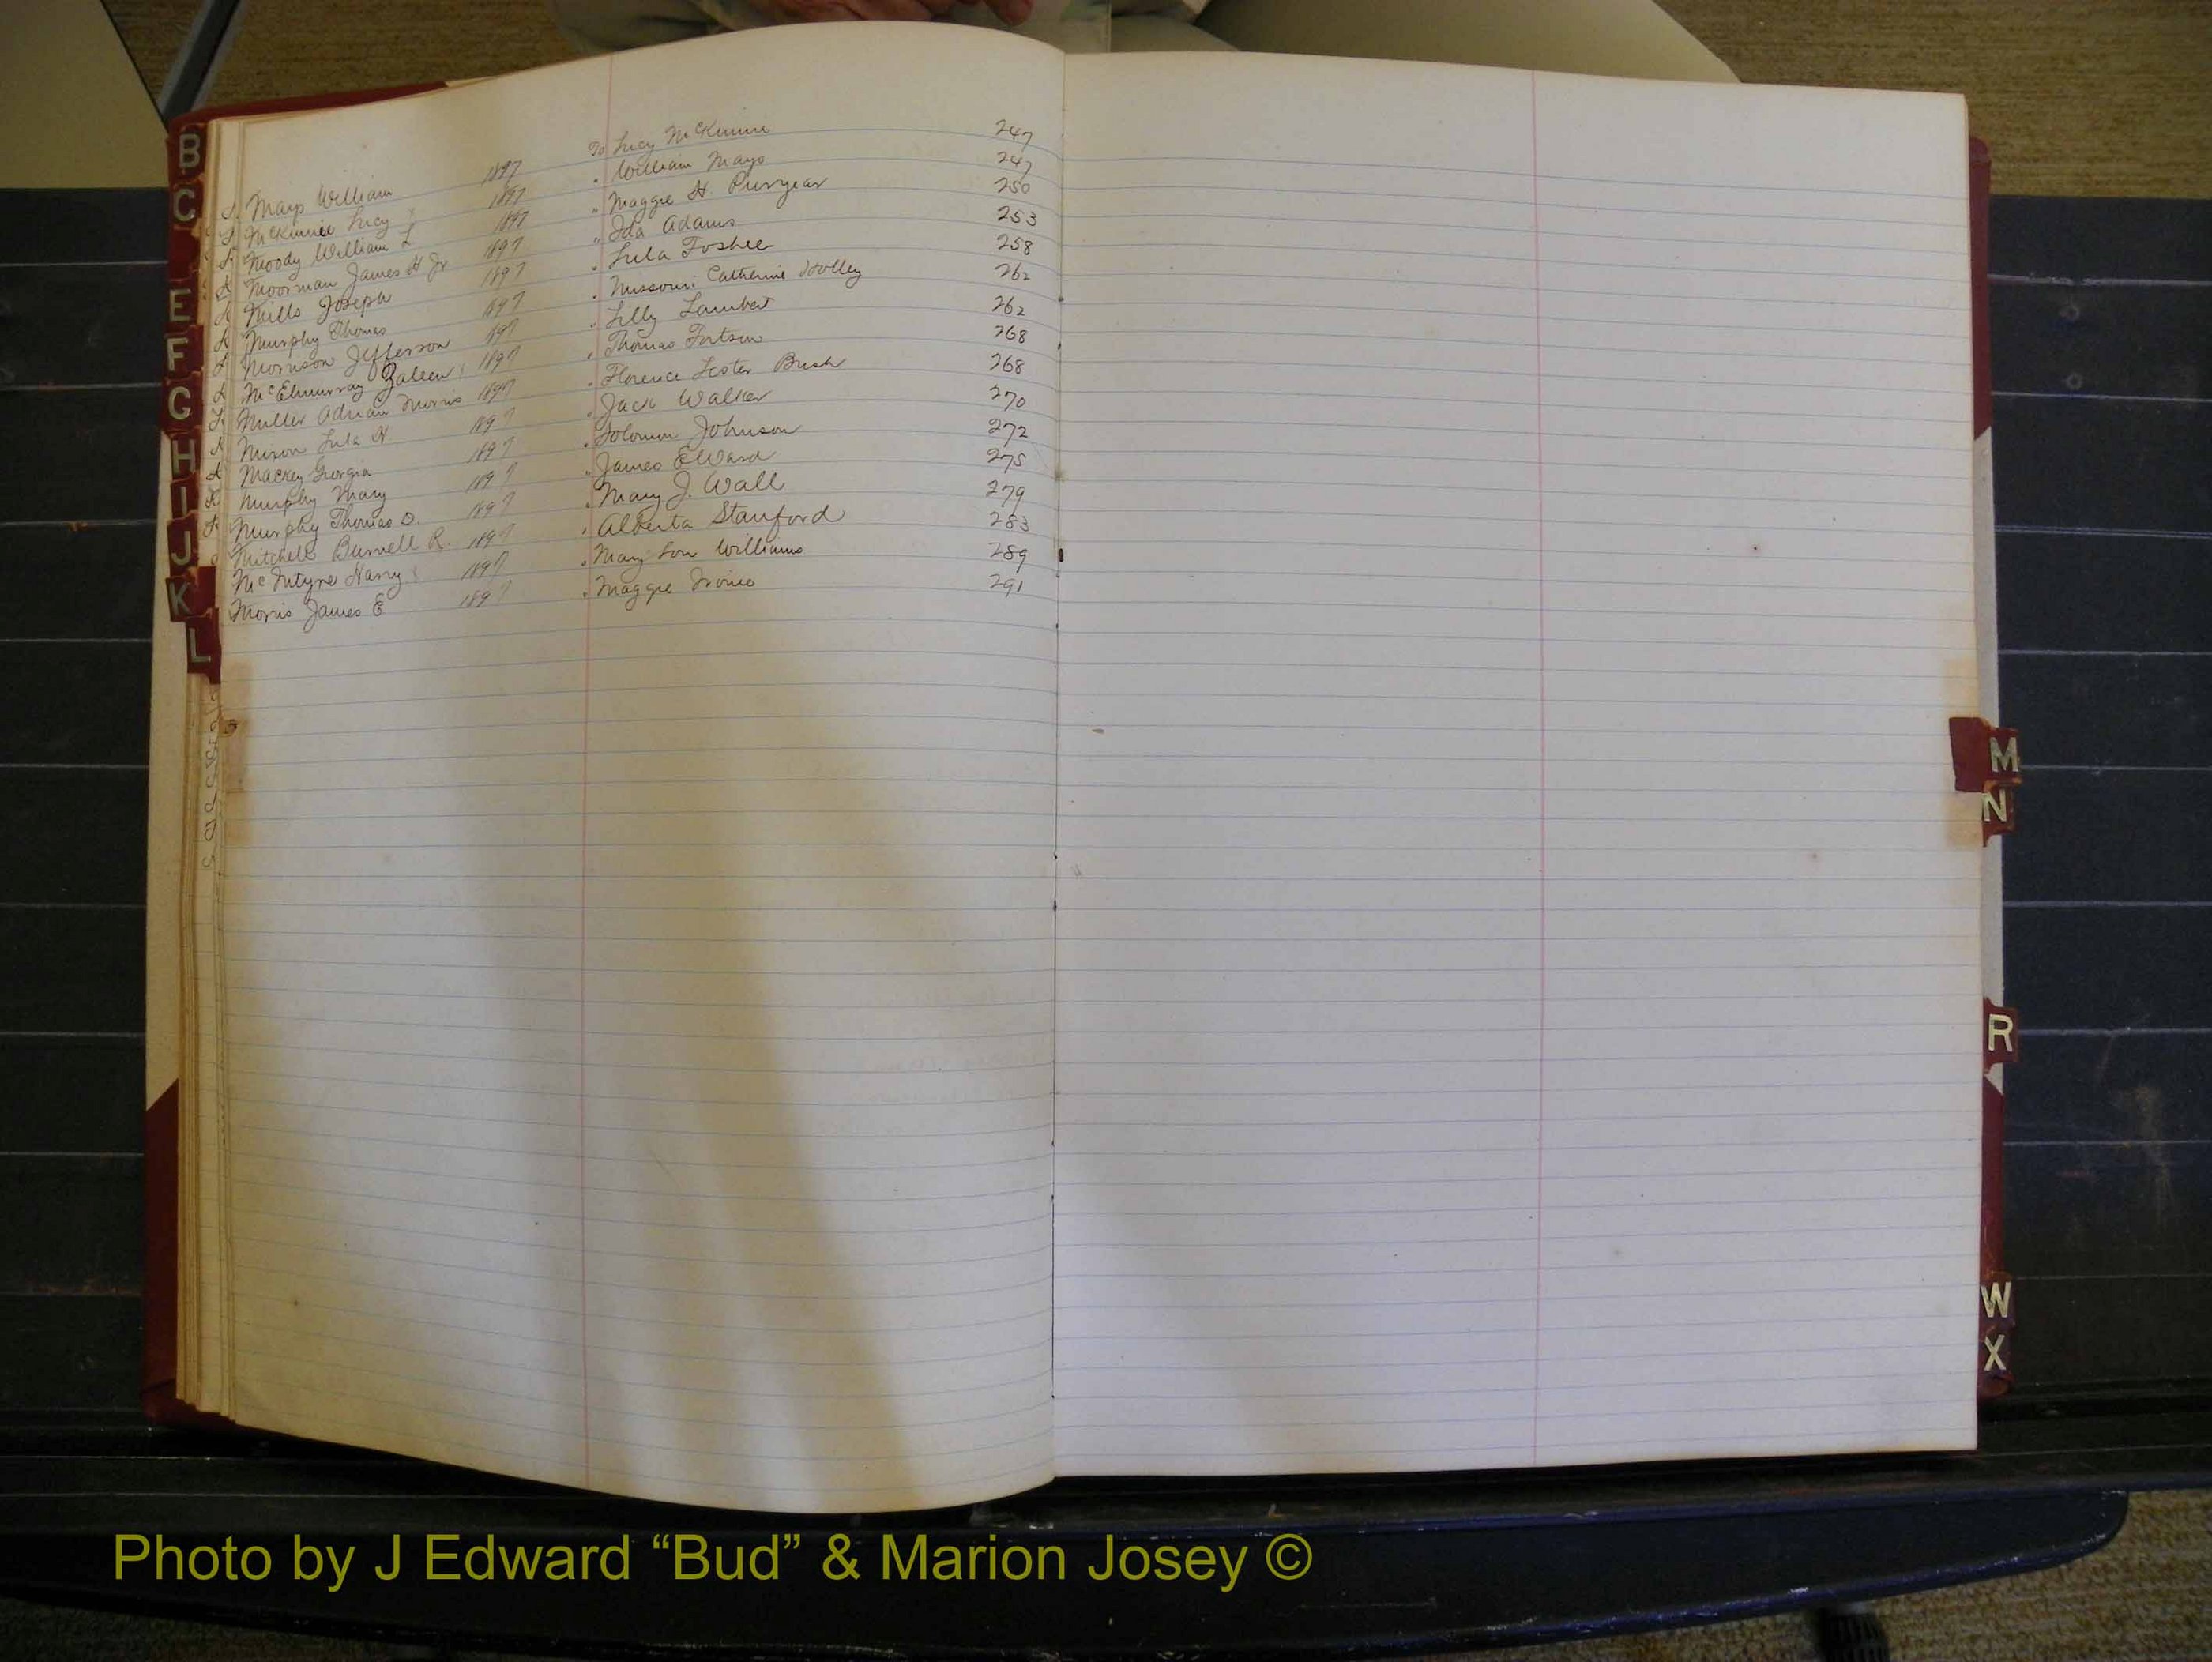 Mays William 1897 To Lucy McKinnie 247
McKinnie Lucy 1897 " William Mays 247
Moody William L 1897 " Maggie H. Puryear 250
Moorman James H Jr 1897 " Ida Adams 253
Mills Joseph 1897 " Lula Foshee 258
Murphy Thomas 1897 " Missouri Catherine Holley 262
Morrison Jefferson 1897 " Lilly Lambert 262
McElmurray 1897 " Thomas Fortson 268
Miller Adrian Morris 1897 " Florence Lester Bush 268
Mixon Lula N 1897 " Jack Walker 270
Mackey Georgia 1897 " Solomon Johnson 272
Murphy Mary 1897 " James E Ward 275
Murphy Thomas O. 1897 " Mary J. Wall 279
Mitchell Burnell R. 1897 " Alberta Stanford 283
McIntyre Harry 1897 " Mary Lou Williams 289
Morris James E 1897 " Maggie 291
B
C
E
F
G
H
I
J
K
L
M
N
R
W
X
Photo by J Edward “Bud” & Marion Josey ©